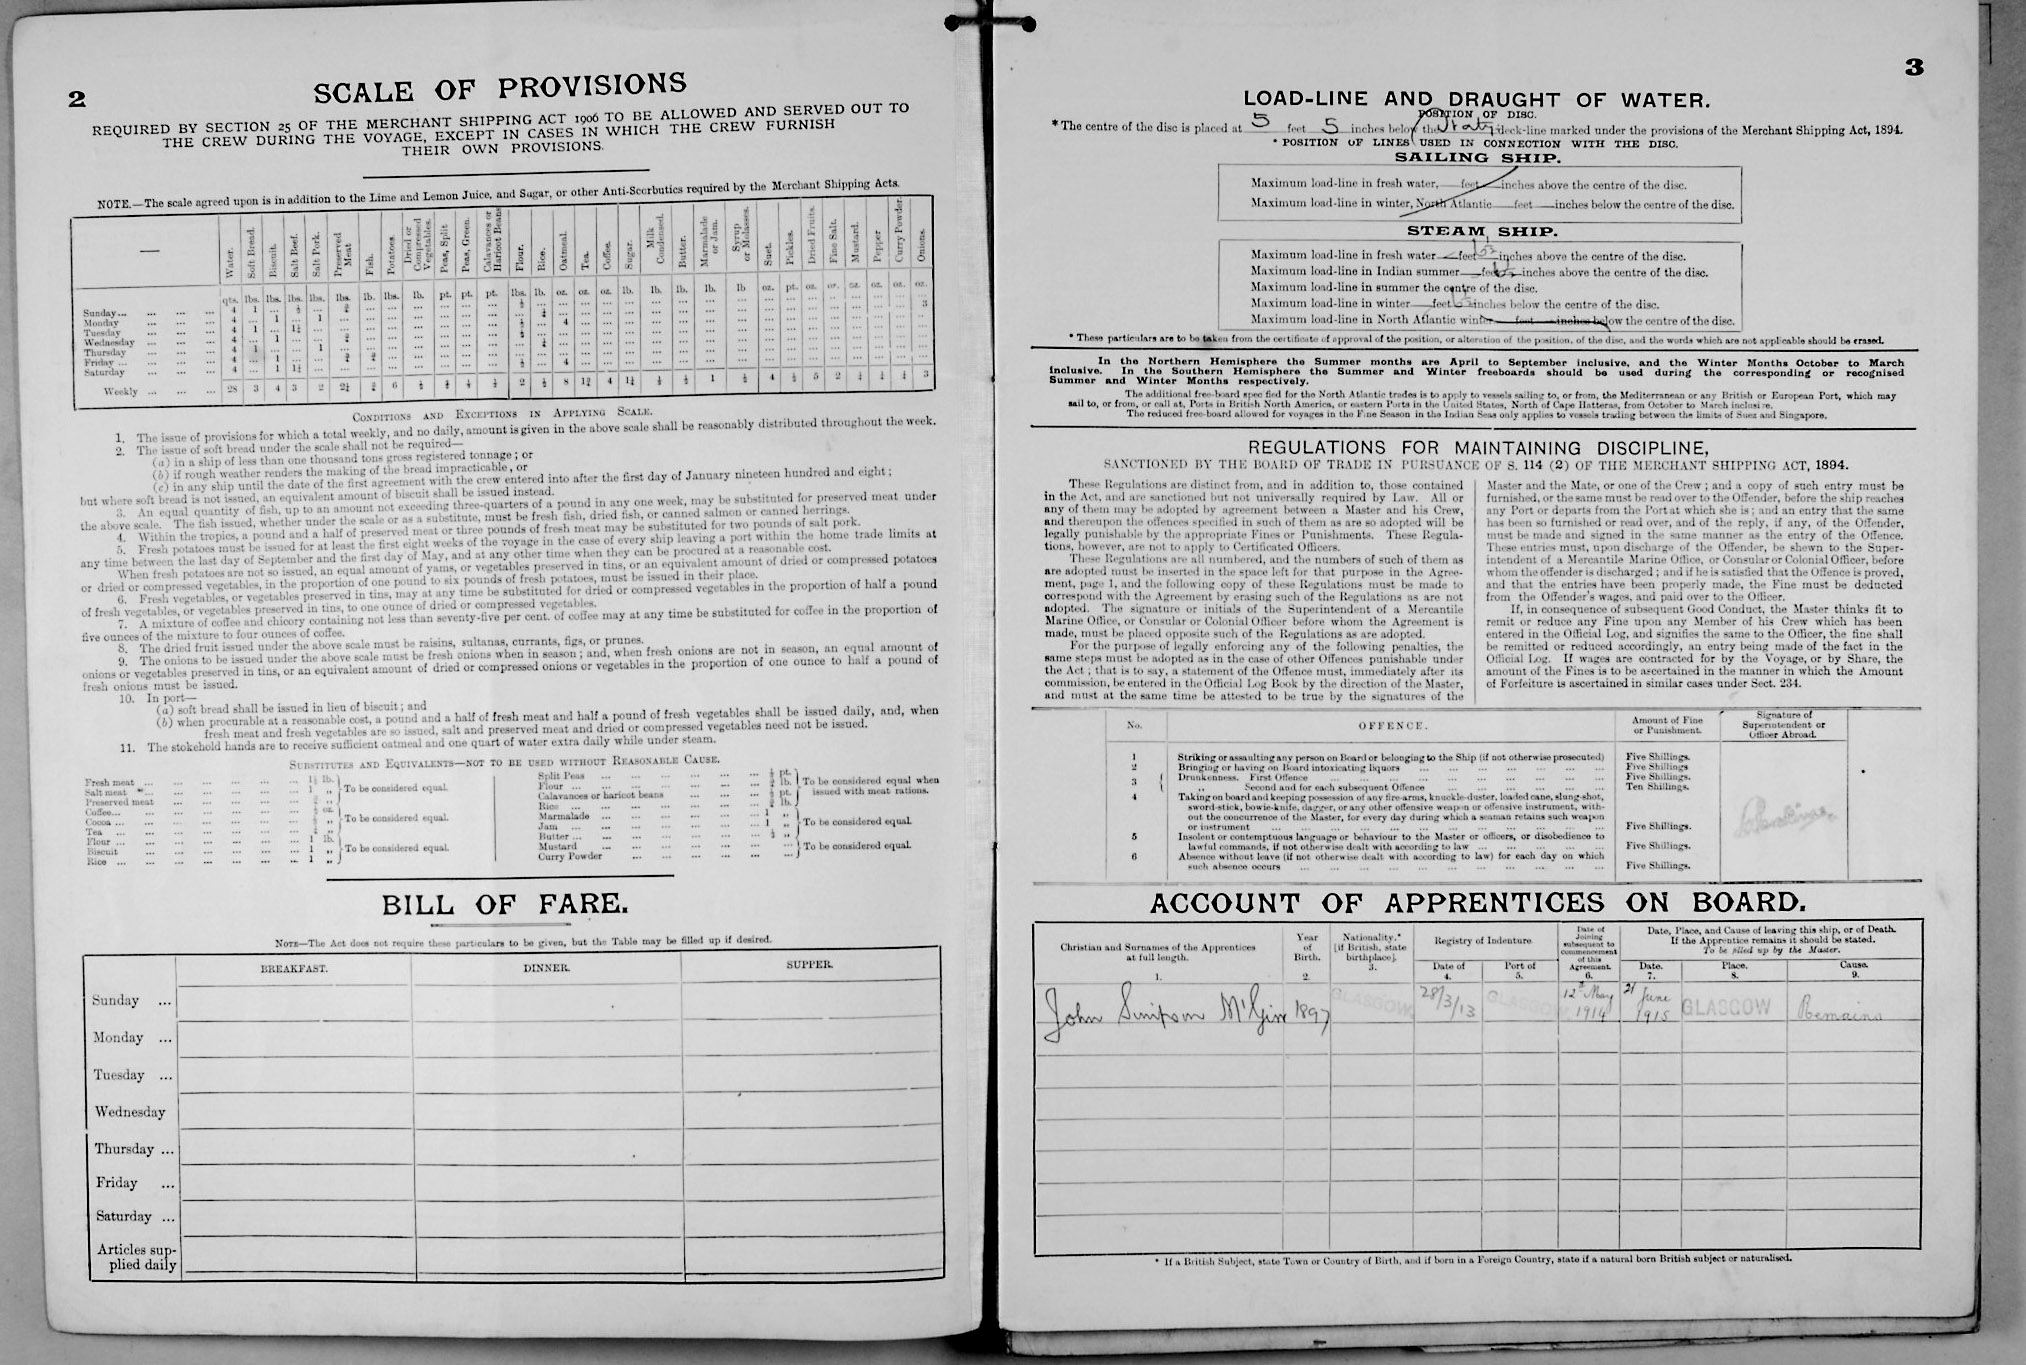 2
SCALE OF PROVISIONS
REQUIRED BY SECTION 25 OF THE MERCHANT SHIPPING ACT 1906 TO BE ALLOWED AND SERVED OUT TO
THE CREW DURING THE VOYAGE, EXCEPT IN CASES IN WHICH THE CREW FURNISH
THEIR OWN PROVISIONS.
NOTE.—The scale agreed upon is in addition to the Lime and Lemon Juice, and Sugar, or other Anti-Scorbutics required by the Merchant Shipping Acts.
— Water. Soft Bread. Biscuit. Salt Beef. Salt Pork. Preserved Meat Fish. Potatoes. Dried or Compressed Vegetables. Peas, Split Peas, Green. Calavances or Haricot Beans Flour. Rice. Oatmeal. Tea. Coffee. Sugar. Milk Condensed. Butter. Marmalade or Jam. Syrup or Molasses. Suet. Pickles. Dried Fruits. Fine Salt. Mustard. Pepper Curry Powder. Onions.
qts. lbs. lbs. lbs. lbs. lbs. lb. lbs. lb. pt. pt. pt. lbs. lb. oz. oz. oz. lb. lb. lb. lb. lb oz. pt. oz. oz. oz. oz. oz. oz.
Sunday... 4 1
Monday 4 1 1 4
Tuesday 4 1 1¼
Wednesday 4 1
Thursday 4 1 1
Friday ... 4 1 4
Saturday 4 1 1¼
Weekly 28 3 4 3 2 2¼ ¾ 6 2 8 1¾ 4 1¼ 1 4 5 2 3
CONDITIONS AND EXCEPTIONS IN APPLYING SCALE.
1. The issue of provisions for which a total weekly, and no daily, amount is given in the above scale shall be reasonably distributed throughout the week.
2. The issue of soft bread under the scale shall not be required—
(a) in a ship of less than one thousand tons gross registered tonnage; or
(b) if rough weather renders the making of the bread impracticable, or
(c) in any ship until the date of the first agreement with the crew entered into after the first day of January nineteen hundred and eight;
but where soft bread is not issued, an equivalent amount of biscuit shall be issued instead.
3. An equal quantity of fish, up to an amount not exceeding three-quarters of a pound in any one week, may be substituted for preserved meat under
the above scale. The fish issued, whether under the scale or as a substitute, must be fresh fish, dried fish, or canned salmon or canned herrings.
4. Within the tropics, a pound and a half of preserved meat or three pounds of fresh meat may be substituted for two pounds of salt pork.
5. Fresh potatoes must be issued for at least the first eight weeks of the voyage in the case of every ship leaving a port within the home trade limits at
any time between the last day of September and the first day of May, and at any other time when they can be procured at a reasonable cost.
When fresh potatoes are not so issued, an equal amount of yams, or vegetables preserved in tins, or an equivalent amount of dried or compressed potatoes
or dried or compressed vegetables, in the proportion of one pound to six pounds of fresh potatoes, must be issued in their place.
6. Fresh vegetables, or vegetables preserved in tins, may at any time be substituted for dried or compressed vegetables in the proportion of half a pound
of fresh vegetables, or vegetables preserved in tins, to one ounce of dried or compressed vegetables.
7. A mixture of coffee and chicory containing not less than seventy-five per cent. of coffee may at any time be substituted for coffee in the proportion of
five ounces of the mixture to four ounces of coffee.
8. The dried fruit issued under the above scale must be raisins, sultanas, currants, figs, or prunes.
9. The onions to be issued under the above scale must be fresh onions when in season; and, when fresh onions are not in season, an equal amount of
onions or vegetables preserved in tins, or an equivalent amount of dried or compressed onions or vegetables in the proportion of one ounce to half a pound of
fresh onions must be issued.
10. In port—
(a) soft bread shall be issued in lieu of biscuit; and
(b) when procurable at a reasonable cost, a pound and a half of fresh meat and half a pound of fresh vegetables shall be issued daily, and, when
fresh meat and fresh vegetables are so issued, salt and preserved meat and dried or compressed vegetables need not be issued.
11. The stokehold hands are to receive sufficient oatmeal and one quart of water extra daily while under steam.
SUBSTITUTES AND EQUIVALENTS—NOT TO BE USED WITHOUT REASONABLE CAUSE.
Fresh meat ... 1½ lb.
Salt meat ... 1 „ To be considered equal.
Preserved meat
Coffee...
Cocoa ... To be considered equal.
Tea ...
Flour ... 1 lb.
Biscuit 1 „ To be considered equal.
Rice ... 1 „
Split Peas
Flour ... To be considered equal when
Calavances or haricot beans issued with meat rations.
Rice ...
Marmalade 1 „
Jam 1 „ To be considered equal.
Butter ... ½ „
Mustard To be considered equal.
Curry Powder
BILL OF FARE.
NOTE—The Act does not require these particulars to be given, but the Table may be filled up if desired.
BREAKFAST. DINNER. SUPPER.
Sunday ...
Monday ...
Tuesday ...
Wednesday
Thursday ...
Friday ...
Saturday ...
Articles sup-
plied daily
3
LOAD-LINE AND DRAUGHT OF WATER.
POSITION OF DISC.
*The centre of the disc is placed at 5 feet 5 inches below the deck-line marked under the provisions of the Merchant Shipping Act, 1894.
* POSITION OF LINES USED IN CONNECTION WITH THE DISC.
SAILING SHIP.
Maximum load-line in fresh water, feet inches above the centre of the disc.
Maximum load-line in winter, North Atlantic feet inches below the centre of the disc.
STEAM SHIP.
Maximum load-line in fresh water feet inches above the centre of the disc.
Maximum load-line in Indian summer feet inches above the centre of the disc.
Maximum load-line in summer the centre of the disc.
Maximum load-line in winter feet inches below the centre of the disc.
Maximum load-line in North Atlantic winter feet inches below the centre of the disc.
* These particulars are to be taken from the certificate of approval of the position, or alteration of the position, of the disc, and the words which are not applicable should be erased.
In the Northern Hemisphere the Summer months are April to September inclusive, and the Winter Months October to March
inclusive. In the Southern Hemisphere the Summer and Winter freeboards should be used during the corresponding or recognised
Summer and Winter Months respectively.
The additional free-board specified for the North Atlantic trades is to apply to vessels sailing to, or from, the Mediterranean or any British or European Port, which may
sail to, or from, or call at, Ports in British North America, or eastern Ports in the United States, North of Cape Hatteras, from October to March inclusive.
The reduced free-board allowed for voyages in the Fine Season in the Indian Seas only applies to vessels trading between the limits of Suez and Singapore.
REGULATIONS FOR MAINTAINING DISCIPLINE,
SANCTIONED BY THE BOARD OF TRADE IN PURSUANCE OF S. 114 (2) OF THE MERCHANT SHIPPING ACT, 1894.
These Regulations are distinct from, and in addition to, those contained
in the Act, and are sanctioned but not universally required by Law. All or
any of them may be adopted by agreement between a Master and his Crew,
and thereupon the offences specified in such of them as are so adopted will be
legally punishable by the appropriate Fines or Punishments. These Regula-
tions, however, are not to apply to Certificated Officers.
These Regulations are all numbered, and the numbers of such of them as
are adopted must be inserted in the space left for that purpose in the Agree-
ment, page 1, and the following copy of these Regulations must be made to
correspond with the Agreement by erasing such of the Regulations as are not
adopted. The signature or initials of the Superintendent of a Mercantile
Marine Office, or Consular or Colonial Officer before whom the Agreement is
made, must be placed opposite such of the Regulations as are adopted.
For the purpose of legally enforcing any of the following penalties, the
same steps must be adopted as in the case of other Offences punishable under
the Act; that is to say, a statement of the Offence must, immediately after its
commission, be entered in the Official Log Book by the direction of the Master,
and must at the same time be attested to be true by the signatures of the
Master and the Mate, or one of the Crew; and a copy of such entry must be
furnished, or the same must be read over to the Offender, before the ship reaches
any Port or departs from the Port at which she is; and an entry that the same
has been so furnished or read over, and of the reply, if any, of the Offender,
must be made and signed in the same manner as the entry of the Offence.
These entries must, upon discharge of the Offender, be shewn to the Super-
intendent of a Mercantile Marine Office, or Consular or Colonial Officer, before
whom the offender is discharged; and if he is satisfied that the Offence is proved,
and that the entries have been properly made, the Fine must be deducted
from the Offender's wages, and paid over to the Officer.
If, in consequence of subsequent Good Conduct, the Master thinks fit to
remit or reduce any Fine upon any Member of his Crew which has been
entered in the Official Log, and signifies the same to the Officer, the fine shall
be remitted or reduced accordingly, an entry being made of the fact in the
Official Log. If wages are contracted for by the Voyage, or by Share, the
amount of the Fines is to be ascertained in the manner in which the Amount
of Forfeiture is ascertained in similar cases under Sect. 234.
No. OFFENCE. Amount of Fine or Punishment. Signature of Superintendent or Officer Abroad.
1 Striking or assaulting any person on Board or belonging to the Ship (if not otherwise prosecuted) Five Shillings.
2 Bringing or having on Board intoxicating liquors Five Shillings
3 Drunkenness. First Offence Five Shillings.
„ Second and for each subsequent Offence Ten Shillings.
4 Taking on board and keeping possession of any fire-arms, knuckle-duster, loaded cane, slung-shot,
sword-stick, bowie-knife, dagger, or any other offensive weapon or offensive instrument, with-
out the concurrence of the Master, for every day during which a seaman retains such weapon
or instrument Five Shillings.
5 Insolent or contemptuous language or behaviour to the Master or officers, or disobedience to
lawful commands, if not otherwise dealt with according to law Five Shillings.
6 Absence without leave (if not otherwise dealt with according to law) for each day on which
such absence occurs Five Shillings.
ACCOUNT OF APPRENTICES ON BOARD.
Christian and Surnames of the Apprentices at full length. 1.
Year of Birth. 2.
Nationality.* [if British, state birthplace]. 3.
Registry of Indenture
Date of 4.
Port of 5.
Date of Joining subsequent to commencement of this Agreement. 6.
Date, Place, and Cause of leaving this ship, or of Death.
If the Apprentice remains it should be stated.
To be filled up by the Master.
Date. 7.
Place. 8.
Cause. 9.
John Simpson M'Ginn 1897 GLASGOW 28/3/13 GLASGOW 12th May 1914 21 June 1915 GLASGOW Remains
* If a British Subject, state Town or Country of Birth, and if born in a Foreign Country, state if a natural born British subject or naturalised.